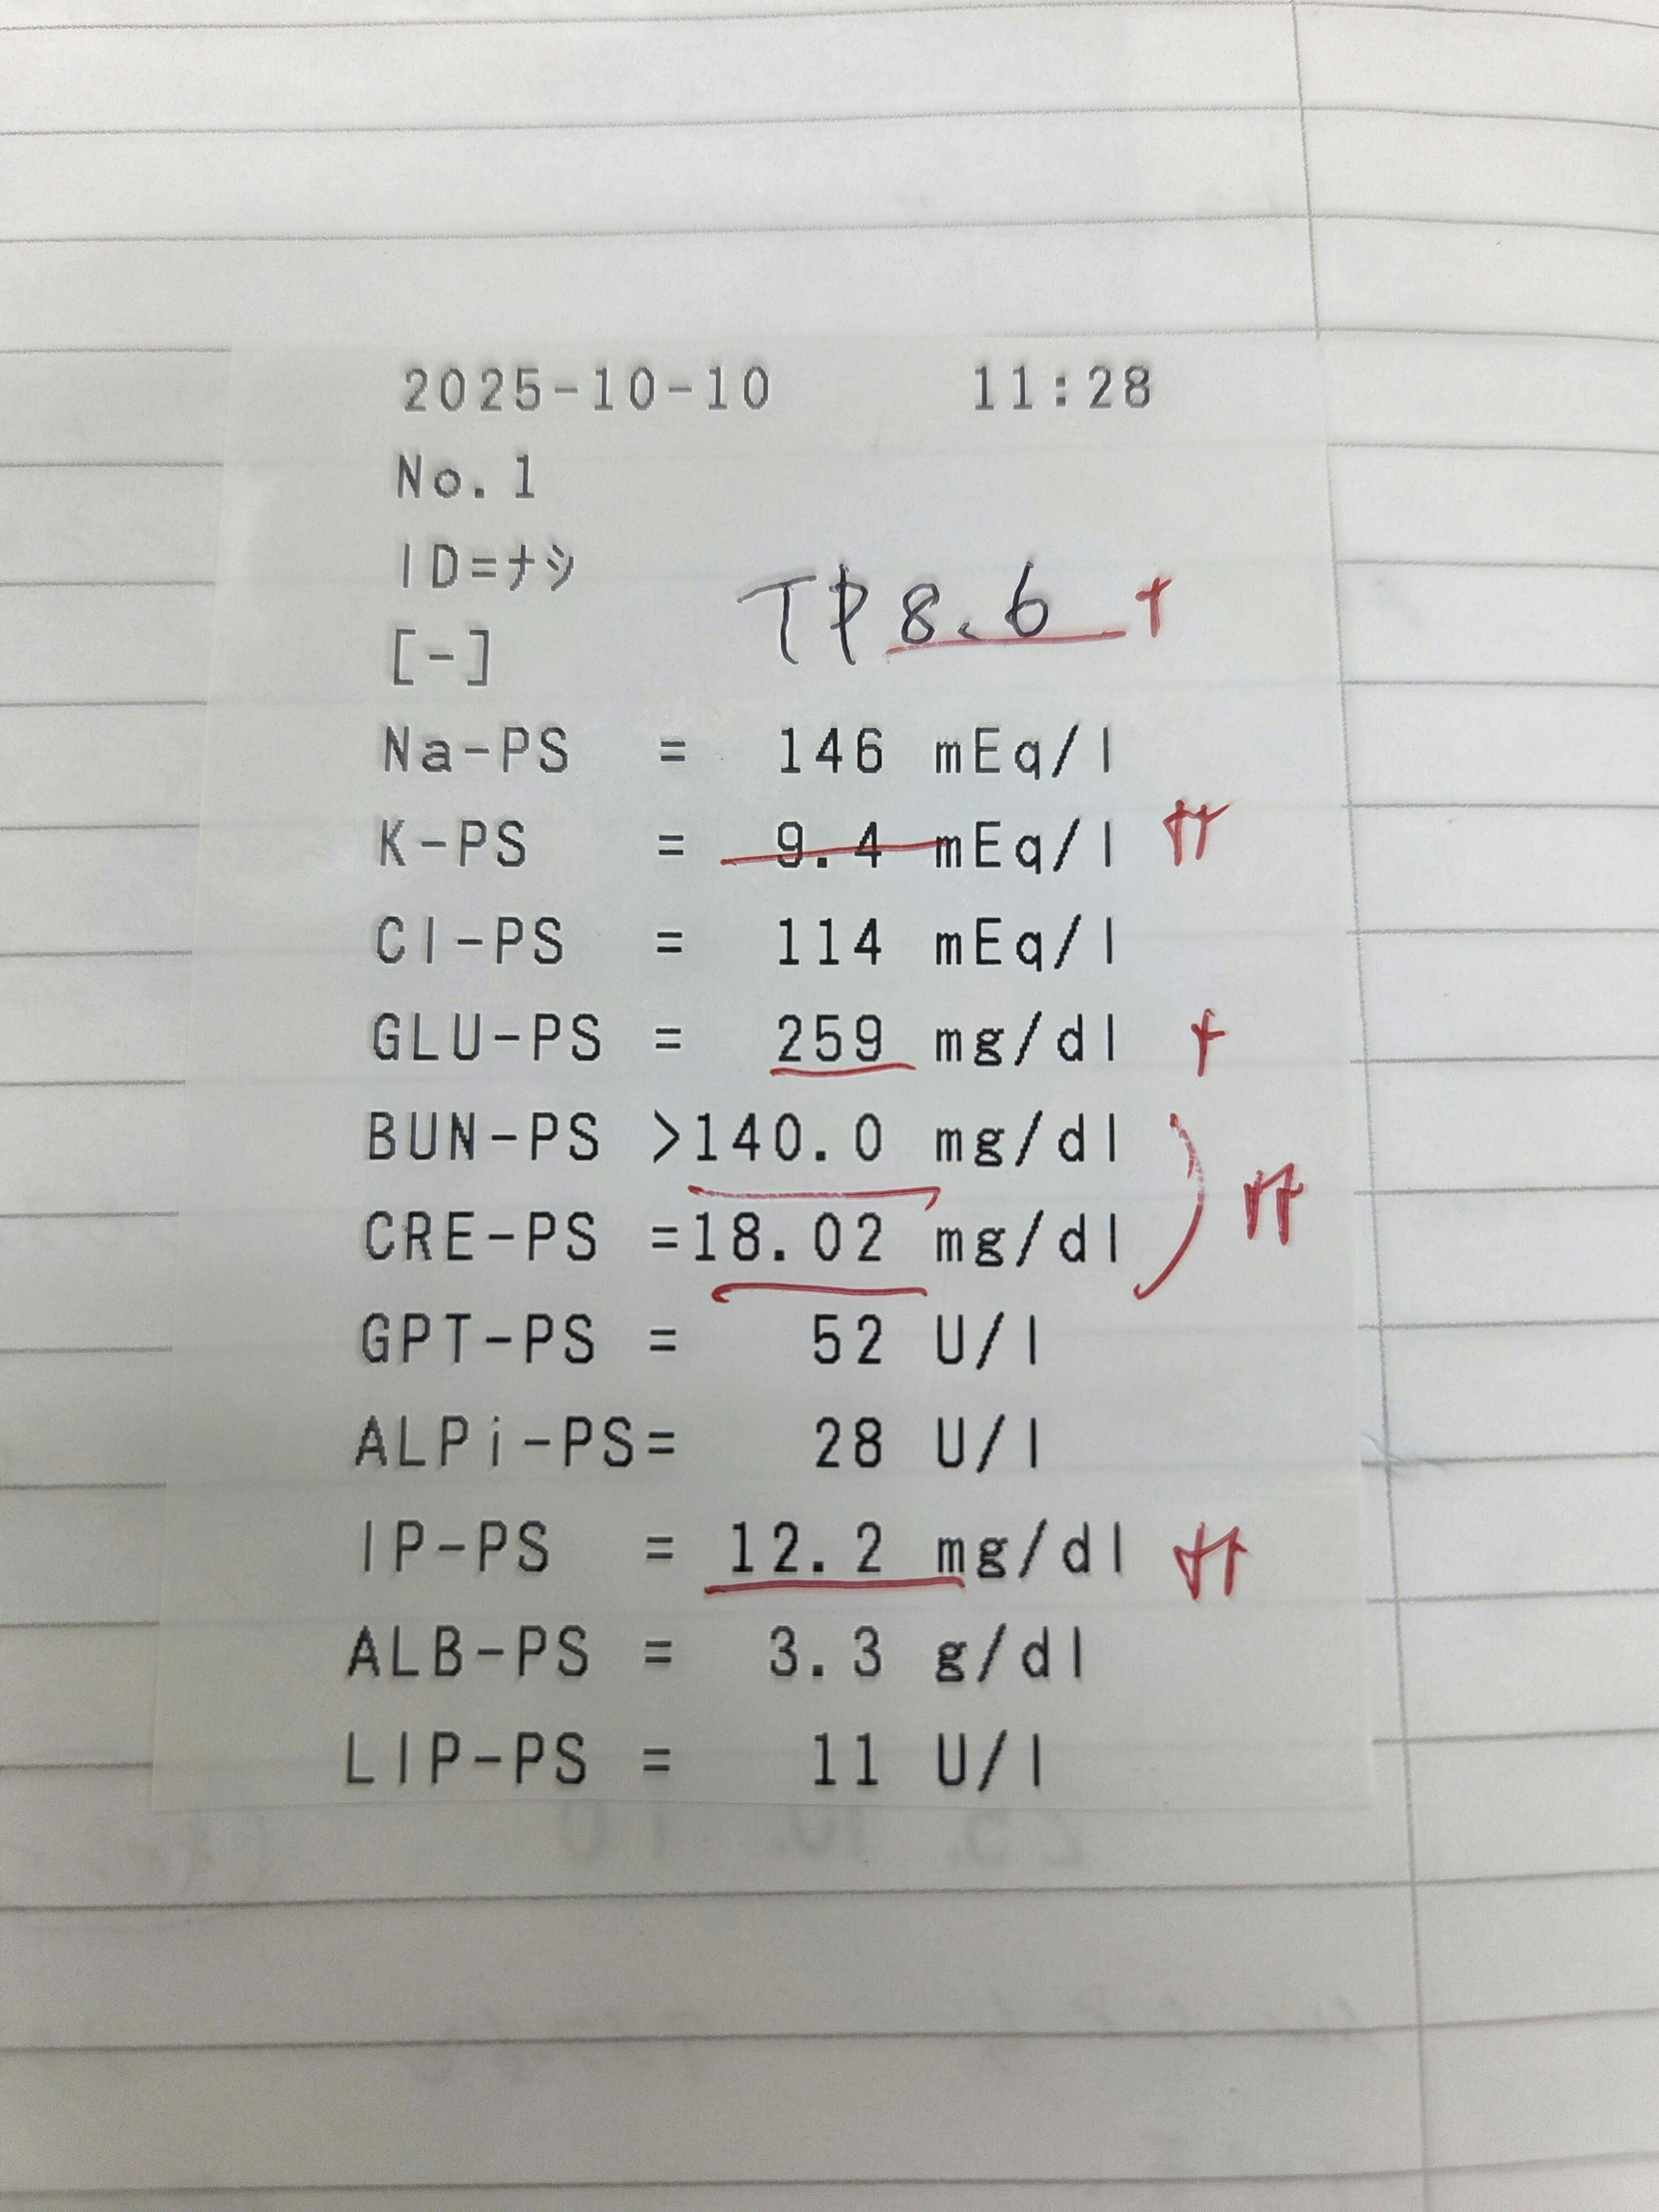 2025-10-10 11:28
No.1
ID=ナシ
[-]
TP 8.6 +
Na-PS = 146 mEq/l
K-PS = 9.4 mEq/l ++
Cl-PS = 114 mEq/l
GLU-PS = 259 mg/dl +
BUN-PS >140.0 mg/dl
CRE-PS =18.02 mg/dl ++
GPT-PS = 52 U/l
ALPi-PS= 28 U/l
IP-PS = 12.2 mg/dl ++
ALB-PS = 3.3 g/dl
LIP-PS = 11 U/l